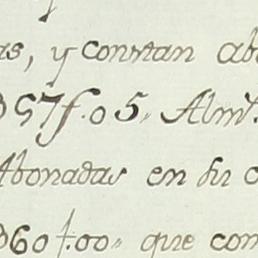 as, y constan ab
957f.05,, Alm.
Abonadas en su
960f.00,, que con